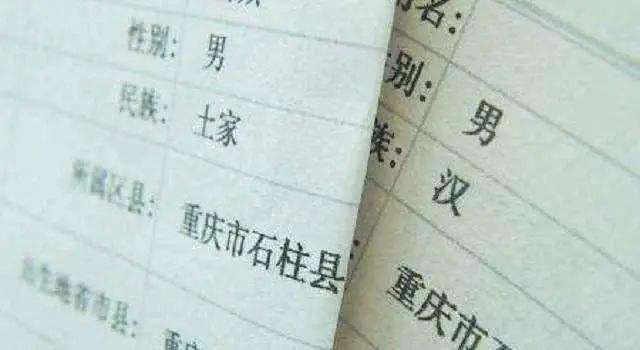 性别：男
民族：土家
所属区县：重庆市石柱县
出生地省市县：重庆
名：
性别：男
族：汉
重庆市石